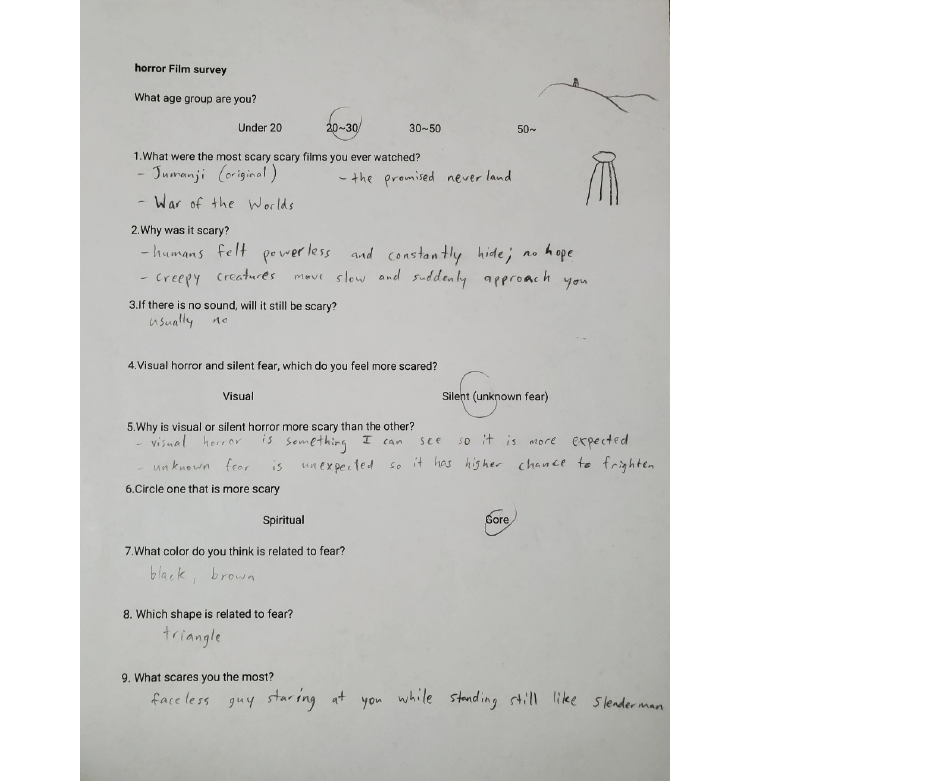 horror Film survey
What age group are you?
Under 20 20~30 30~50 50~
1.What were the most scary scary films you ever watched?
- Jumanji (original) - the promised never land
- War of the Worlds
2.Why was it scary?
- humans felt powerless and constantly hide; no hope
- creepy creatures move slow and suddenly approach you
3.If there is no sound, will it still be scary?
usually no
4.Visual horror and silent fear, which do you feel more scared?
Visual Silent (unknown fear)
5.Why is visual or silent horror more scary than the other?
- visual horror is something I can see so it is more expected
- unknown fear is unexpected so it has higher chance to frighten
6.Circle one that is more scary
Spiritual Gore
7.What color do you think is related to fear?
black, brown
8. Which shape is related to fear?
triangle
9. What scares you the most?
faceless guy staring at you while standing still like slenderman